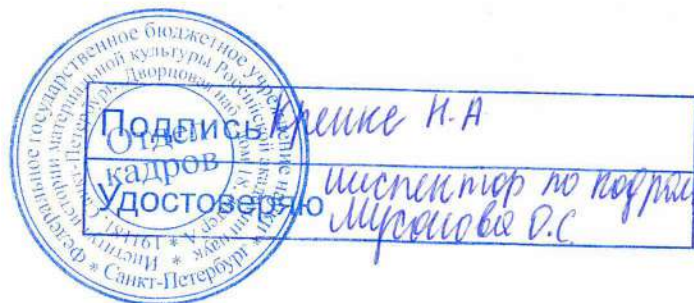 Федеральное государственное бюджетное учреждение науки
Институт истории материальной культуры Российской академии наук
191181, Санкт-Петербург, Дворцовая наб., дом 18, литер А
Санкт-Петербург
Отдел
кадров
Подпись Кренке Н.А
Удостоверяю инспектор по кадрам
О.С.